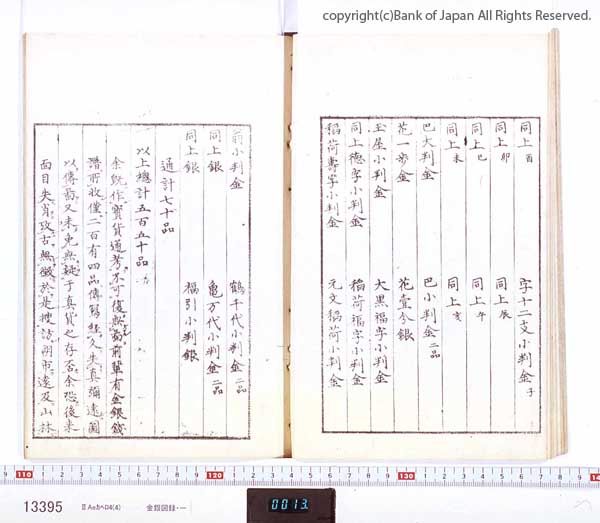 copyright(c)Bank of Japan All Rights Reserved.
同上酉 字十二支小判金子
同上卯 同上辰
同上巳 同上午
同上未 同上亥
巴大判金 巴小判金二品
花一歩金 花壹分銀
玉屋小判金 大黒福字小判金
同上徳字小判金 稲荷福字小判金
稲荷壽字小判金 元文稲荷小判金
前小判金 鶴千代小判金二品
同上銀 亀万代小判金二品
同上銀 福引小判銀
通計七十品
以上總計五百五十品
余既作寶貨通考不可復無前輩有金銀錢
譜所收僅二百有四品傳寫経久失真
以傳而又未免無疑于真貨之存否余恐後来
面目失肖攷古無徴於是捜訪朔市遠及山林
13395
ⅡAeあへD4(4)
金銀図録・一
0013
110 120 130